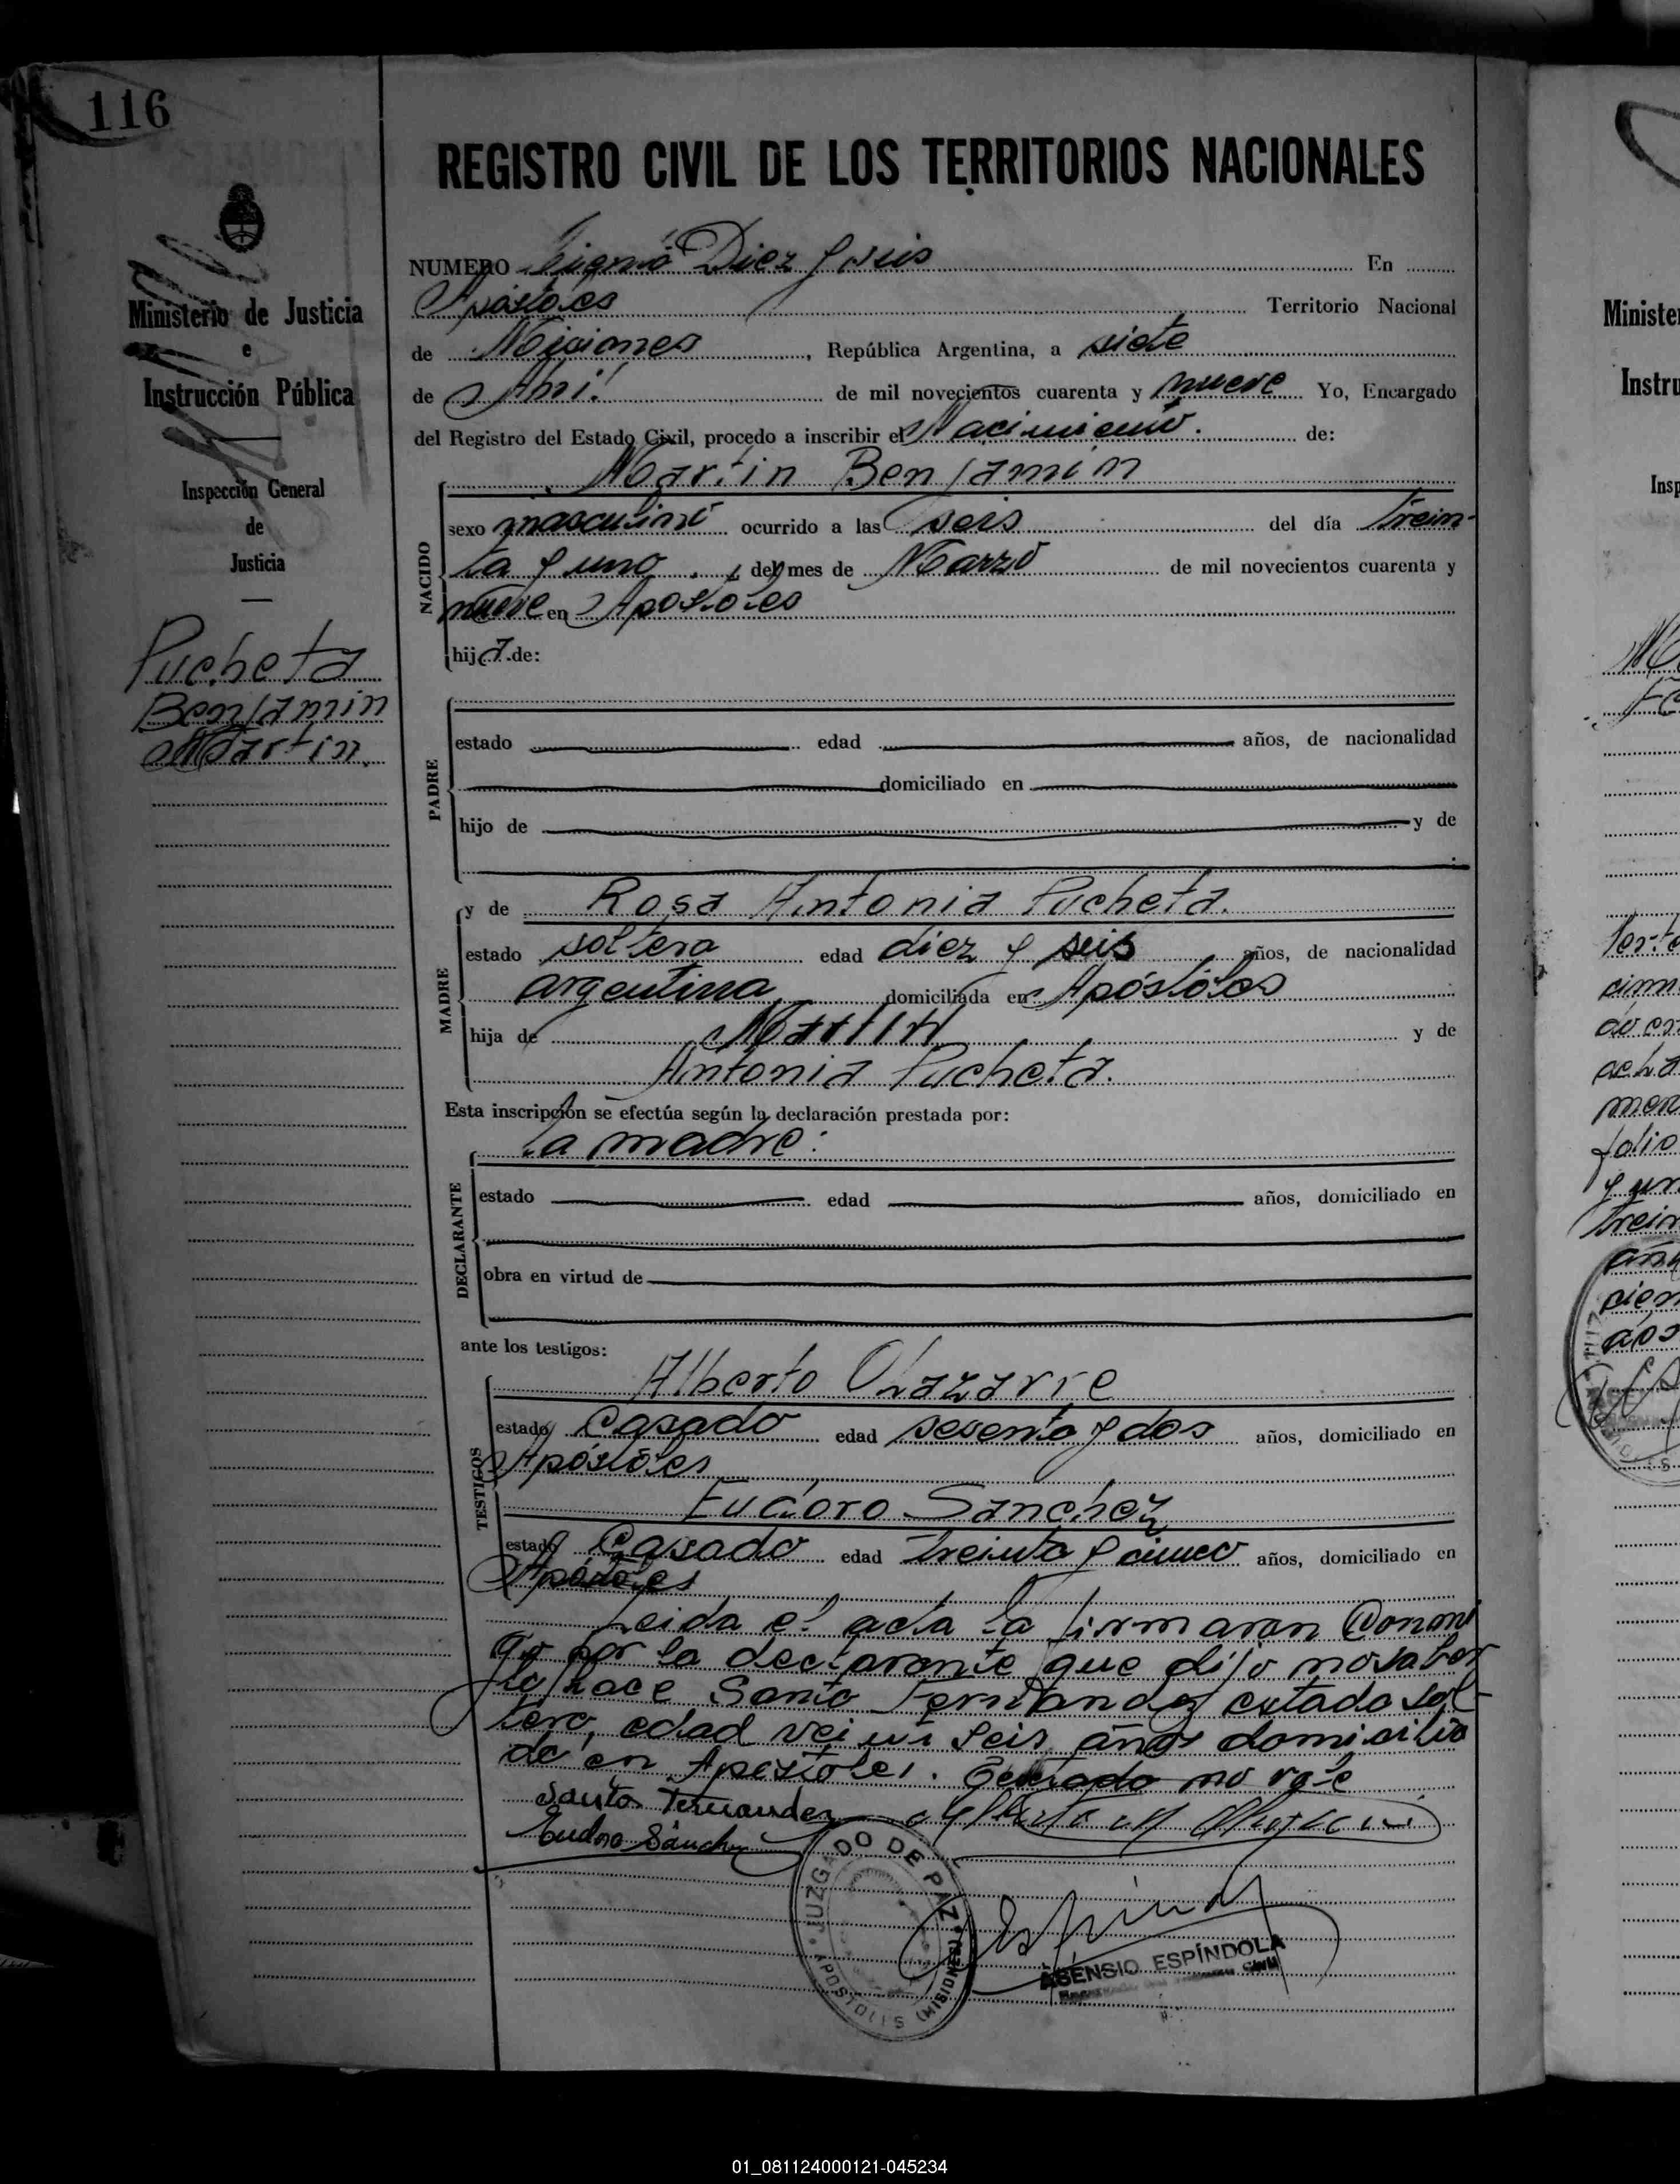 116
REGISTRO CIVIL DE LOS TERRITORIOS NACIONALES
NUMERO Ciento Diez y seis En
Apóstoles Territorio Nacional
de Misiones, República Argentina, a siete
de Abril de mil novecientos cuarenta y nueve Yo, Encargado
del Registro del Estado Civil, procedo a inscribir el Nacimiento. de:
Ministerio de Justicia
e
Instrucción Pública
Inspección General
de
Justicia
Pucheta
Benjamin
Martin.
NACIDO
Martin Benjamin
sexo masculino ocurrido a las seis del día trein-
ta y uno del mes de Marzo de mil novecientos cuarenta y
nueve en Apostoles
hij de:
PADRE
estado edad años, de nacionalidad
domiciliado en
hijo de y de
MADRE
y de Rosa Antonia Pucheta.
estado soltera edad diez y seis años, de nacionalidad
argentina domiciliada en Apóstoles
hija de y de
Antonia Pucheta.
Esta inscripción se efectúa según la declaración prestada por:
DECLARANTE
la madre:
estado edad años, domiciliado en
obra en virtud de
ante los testigos:
TESTIGOS
Alberto Olazarre
estado Casado edad sesenta y dos años, domiciliado en
Apóstoles
Eudoro Sanchez
estado Casado edad treinta y cinco años, domiciliado en
Apóstoles
Leida el acta la firmaran Conmi
go por la declarante que dijo no saber
lo hace Santo Fernandez estado sol-
tero, edad veinti seis años domicilia
do en Apóstoles. no vale
Santos Fernandez
Eudoro Sánchez
JUZGADO DE PAZ
APOSTOLES (MISIONES)
ASENSIO ESPÍNDOLA
01_081124000121-045234